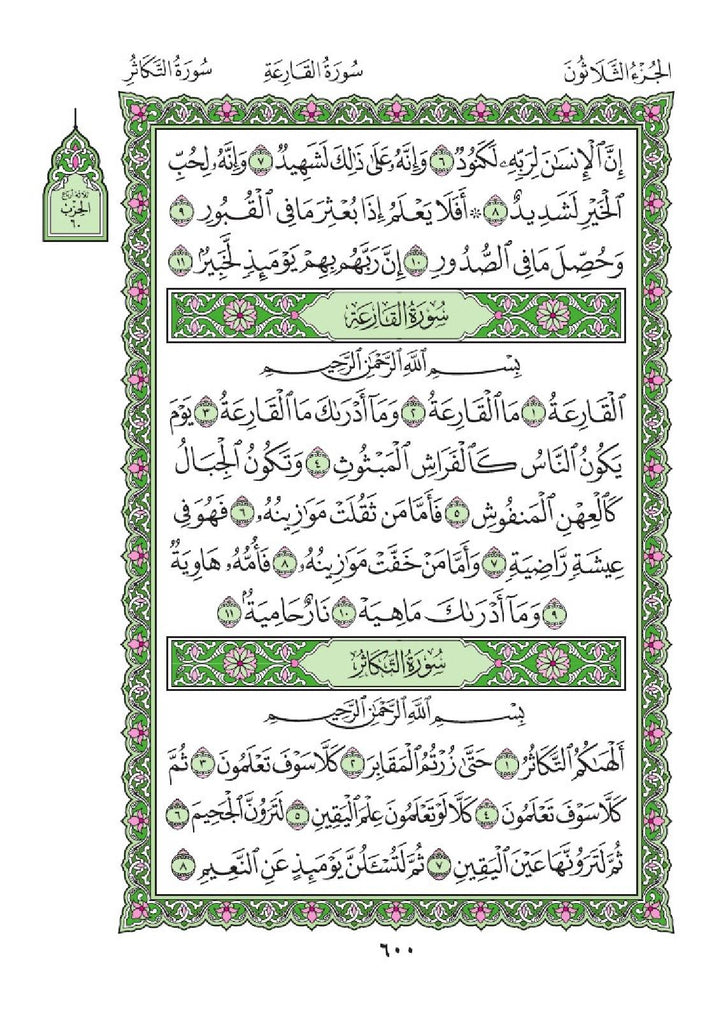 الجُزْءُ الثَّلَاثُونَ
سُورَةُ القَارِعَةِ
سُورَةُ التَّكَاثُرُ
ثلاثة أرباع
الحزب
٦٠
إِنَّ ٱلْإِنسَٰنَ لِرَبِّهِۦ لَكَنُودٌ ٦ وَإِنَّهُۥ عَلَىٰ ذَٰلِكَ لَشَهِيدٌ ٧ وَإِنَّهُۥ لِحُبِّ
ٱلْخَيْرِ لَشَدِيدٌ ٨ ۞ أَفَلَا يَعْلَمُ إِذَا بُعْثِرَ مَا فِى ٱلْقُبُورِ ٩
وَحُصِّلَ مَا فِى ٱلصُّدُورِ ١٠ إِنَّ رَبَّهُم بِهِمْ يَوْمَئِذٍ لَّخَبِيرٌۢ ١١
سُورَةُ القَارِعَة
بِسْمِ ٱللَّهِ ٱلرَّحْمَٰنِ ٱلرَّحِيمِ
ٱلْقَارِعَةُ ١ مَا ٱلْقَارِعَةُ ٢ وَمَآ أَدْرَىٰكَ مَا ٱلْقَارِعَةُ ٣ يَوْمَ
يَكُونُ ٱلنَّاسُ كَٱلْفَرَاشِ ٱلْمَبْثُوثِ ٤ وَتَكُونُ ٱلْجِبَالُ
كَٱلْعِهْنِ ٱلْمَنفُوشِ ٥ فَأَمَّا مَن ثَقُلَتْ مَوَٰزِينُهُۥ ٦ فَهُوَ فِى
عِيشَةٍ رَّاضِيَةٍ ٧ وَأَمَّا مَنْ خَفَّتْ مَوَٰزِينُهُۥ ٨ فَأُمُّهُۥ هَاوِيَةٌ
٩ وَمَآ أَدْرَىٰكَ مَا هِيَهْ ١٠ نَارٌ حَامِيَةٌۢ ١١
سُورَةُ التَّكَاثُر
بِسْمِ ٱللَّهِ ٱلرَّحْمَٰنِ ٱلرَّحِيمِ
أَلْهَىٰكُمُ ٱلتَّكَاثُرُ ١ حَتَّىٰ زُرْتُمُ ٱلْمَقَابِرَ ٢ كَلَّا سَوْفَ تَعْلَمُونَ ٣ ثُمَّ
كَلَّا سَوْفَ تَعْلَمُونَ ٤ كَلَّا لَوْ تَعْلَمُونَ عِلْمَ ٱلْيَقِينِ ٥ لَتَرَوُنَّ ٱلْجَحِيمَ ٦
ثُمَّ لَتَرَوُنَّهَا عَيْنَ ٱلْيَقِينِ ٧ ثُمَّ لَتُسْـَٔلُنَّ يَوْمَئِذٍ عَنِ ٱلنَّعِيمِ ٨
٦٠٠